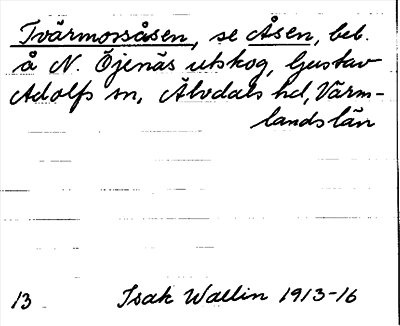 Tvärmossåsen, se Åsen, beb.
å N. Öjenäs utskog, Gustav
Adolfs sn, Älvdals hd, Värm-
landslän
13 Isak Wallin 1913-16